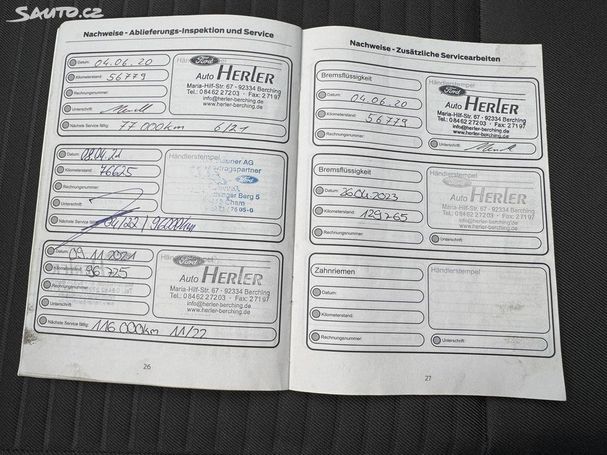 SAUTO.CZ
Nachweise - Ablieferungs-Inspektion und Service
Datum: 04.06.20
Kilometerstand: 56779
Rechnungsnummer:
Unterschrift:
Nächste Service fällig: 77 000km 6/21
Händlerstempel
Ford
Auto HERLER
Maria-Hilf-Str. 67 - 92334 Berching
Tel.: 08462 27203 · Fax: 27197
info@herler-berching.de
www.herler-berching.de
Datum: 08.04.21
Kilometerstand: 76625
Rechnungsnummer:
Unterschrift:
Nächste Service fällig: 04/22 / 96000km
Händlerstempel
AG
Ford
Berg 5
Cham
Datum: 09.11.2021
Kilometerstand: 96 725
Rechnungsnummer:
Unterschrift:
Nächste Service fällig: 116 000km 11/22
Ford
Auto HERLER
Maria-Hilf-Str. 67 - 92334 Berching
Tel.: 08462 27203 · Fax: 27197
info@herler-berching.de
www.herler-berching.de
26
Nachweise - Zusätzliche Servicearbeiten
Bremsflüssigkeit
Datum: 04.06.20
Kilometerstand: 56779
Rechnungsnummer:
Händlerstempel
Ford
Auto HERLER
Maria-Hilf-Str. 67 - 92334 Berching
Tel.: 08462 27203 · Fax: 27197
info@herler-berching.de
www.herler-berching.de
Unterschrift:
Bremsflüssigkeit
Datum: 26.04.2023
Kilometerstand: 129765
Rechnungsnummer:
Händlerstempel
Auto HERLER
Maria-Hilf-Str. 67 - 92334 Berching
Tel.: 08462 27203 · Fax: 27197
info@herler-berching.de
www.herler-berching.de
Zahnriemen
Datum:
Kilometerstand:
Rechnungsnummer:
Händlerstempel
Unterschrift:
27